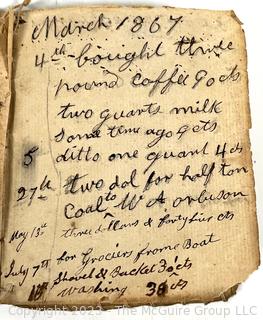 March 1867
4th bought three
pound coffie 90 cts
two quarts milk
some time ago 9 cts
5 ditto one quart 4 cts
27th two dol for half ton
coal to W A orbuson
May 13th three dollars & forty five cts
for Grociers frome Boat
July 7th Shovel & Bucket 30 cts
18th Washing 38 cts
Copyright 2023 - The McGuire Group, LLC